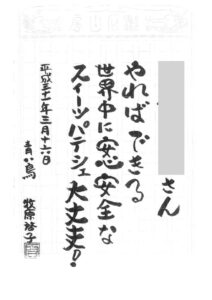 さん
やればできる
世界中に安心安全な
スイーツパテシェ大丈夫!
平成三十一年三月十六日
青い鳥
牧原裕子